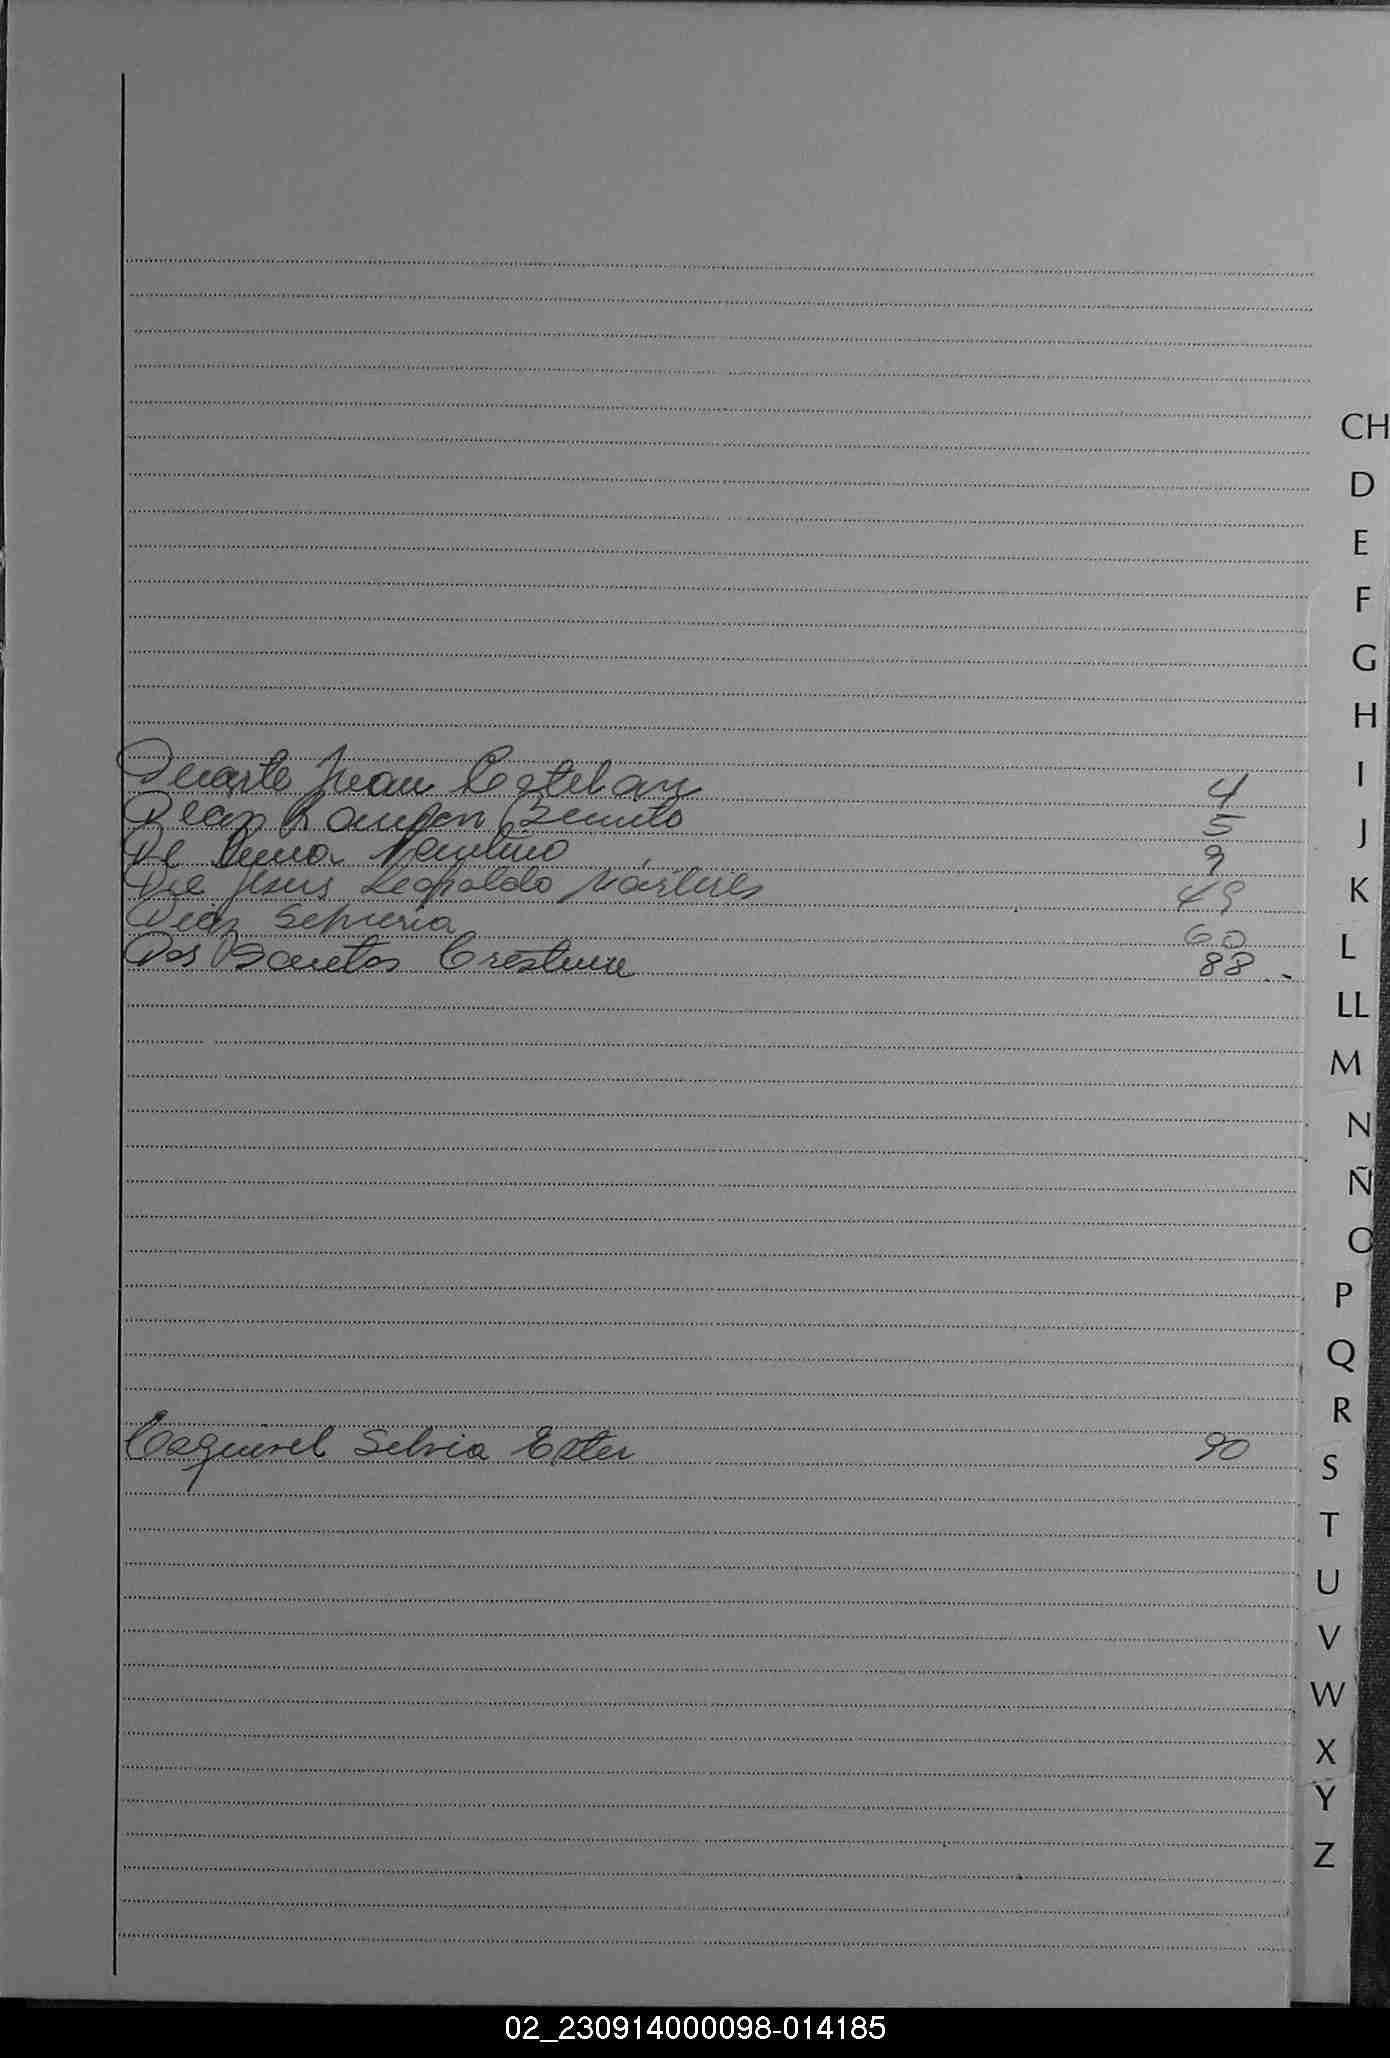 CH
D
E
F
G
H
I
J
K
L
LL
M
N
Ñ
O
P
Q
R
S
T
U
V
W
X
Y
Z
Duarte Juan 4
Diaz Ramon Benito 5
De 9
De Jesus Leopoldo 49
Diaz 60
Dos Santos 88
Esquivel Silvia Ester 90
02_230914000098-014185